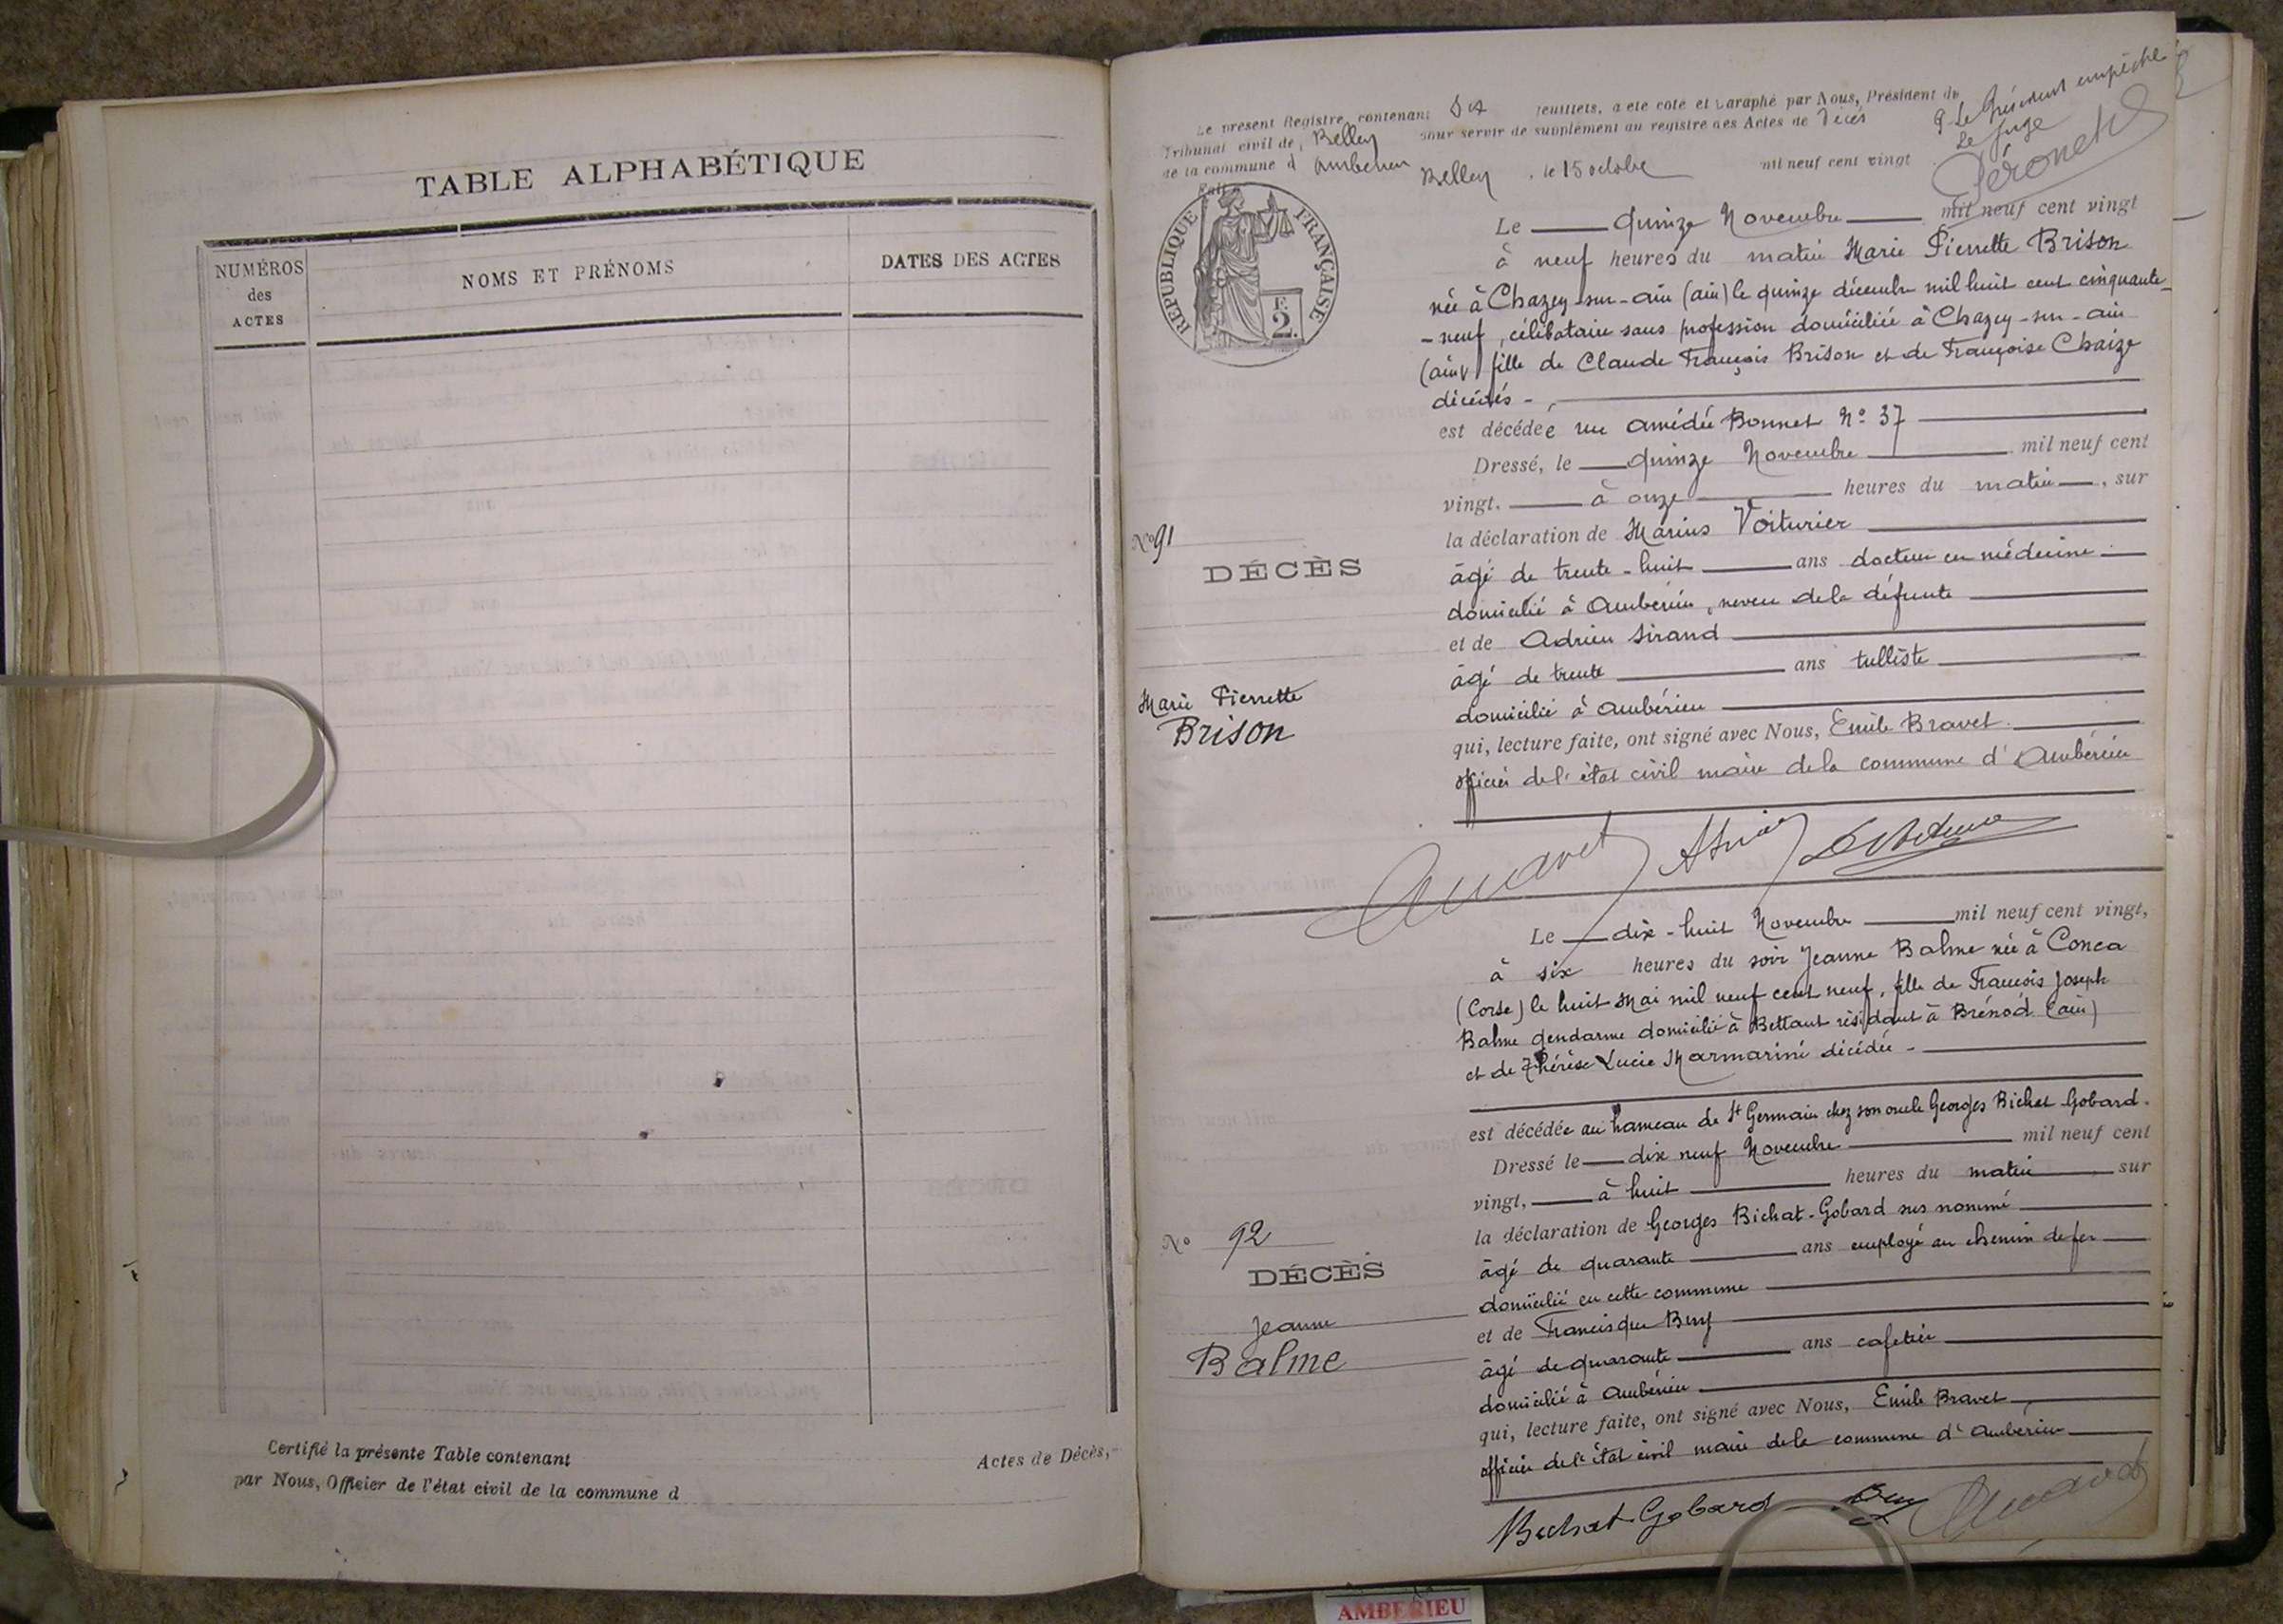 TABLE ALPHABÉTIQUE
NUMÉROS
des
ACTES
NOMS ET PRÉNOMS
DATES DES ACTES
Certifié la présente Table contenant
Actes de Décès,
par Nous, Officier de l'état civil de la commune d
Le présent Registre, contenant Dix feuillets, a été coté et paraphé par Nous, Président du
Tribunal civil de Belley pour servir de supplément au registre des Actes de Décès
de la commune d Ambérieu
Fait Belley, le 15 octobre mil neuf cent vingt
P. Le Président empêché
Le Juge
Péronet
RÉPUBLIQUE FRANÇAISE
F.
2.
Le quinze Novembre mil neuf cent vingt
à neuf heures du matin Marie Pierrette Brison
née à Chazey-sur-ain (ain) le quinze décembre mil huit cent cinquante-
-neuf, célibataire sans profession domiciliée à Chazey-sur-ain
(ain) fille de Claude François Brison et de Françoise Chaize
décédés -,
est décédée rue Amédée Bonnet No 37
Dressé, le quinze Novembre mil neuf cent
vingt, à onze heures du matin, sur
No 91
la déclaration de Marius Voiturier
DÉCÈS
âgé de trente-huit ans docteur en médecine
domicilié à Ambérieu, neveu de la défunte
et de Adrien Sirand
âgé de trente ans tulliste
Marie Pierrette
Brison
domicilié à Ambérieu
qui, lecture faite, ont signé avec Nous, Emile Bravet
officier de l'état civil maire de la commune d'Ambérieu
Le dix-huit Novembre mil neuf cent vingt,
à six heures du soir Jeanne Balme née à Conca
(Corse) le huit Mai mil neuf cent neuf, fille de François Joseph
Balme gendarme domicilié à Bettant résidant à Brénod (ain)
et de Thérèse Lucie Marmarini décédée -
est décédée au hameau de St Germain chez son oncle Georges Bichat-Gobard.
Dressé le dix neuf Novembre mil neuf cent
vingt, à huit heures du matin, sur
No 92
la déclaration de Georges Bichat-Gobard sus nommé
DÉCÈS
âgé de quarante ans employé au chemin de fer
domicilié en cette commune
Jeanne
Balme
et de Francisque Buy
âgé de quarante ans cafetier
domicilié à Ambérieu
qui, lecture faite, ont signé avec Nous, Emile Bravet,
officier de l'état civil maire de la commune d'Ambérieu
Bichat-Gobard
AMBERIEU